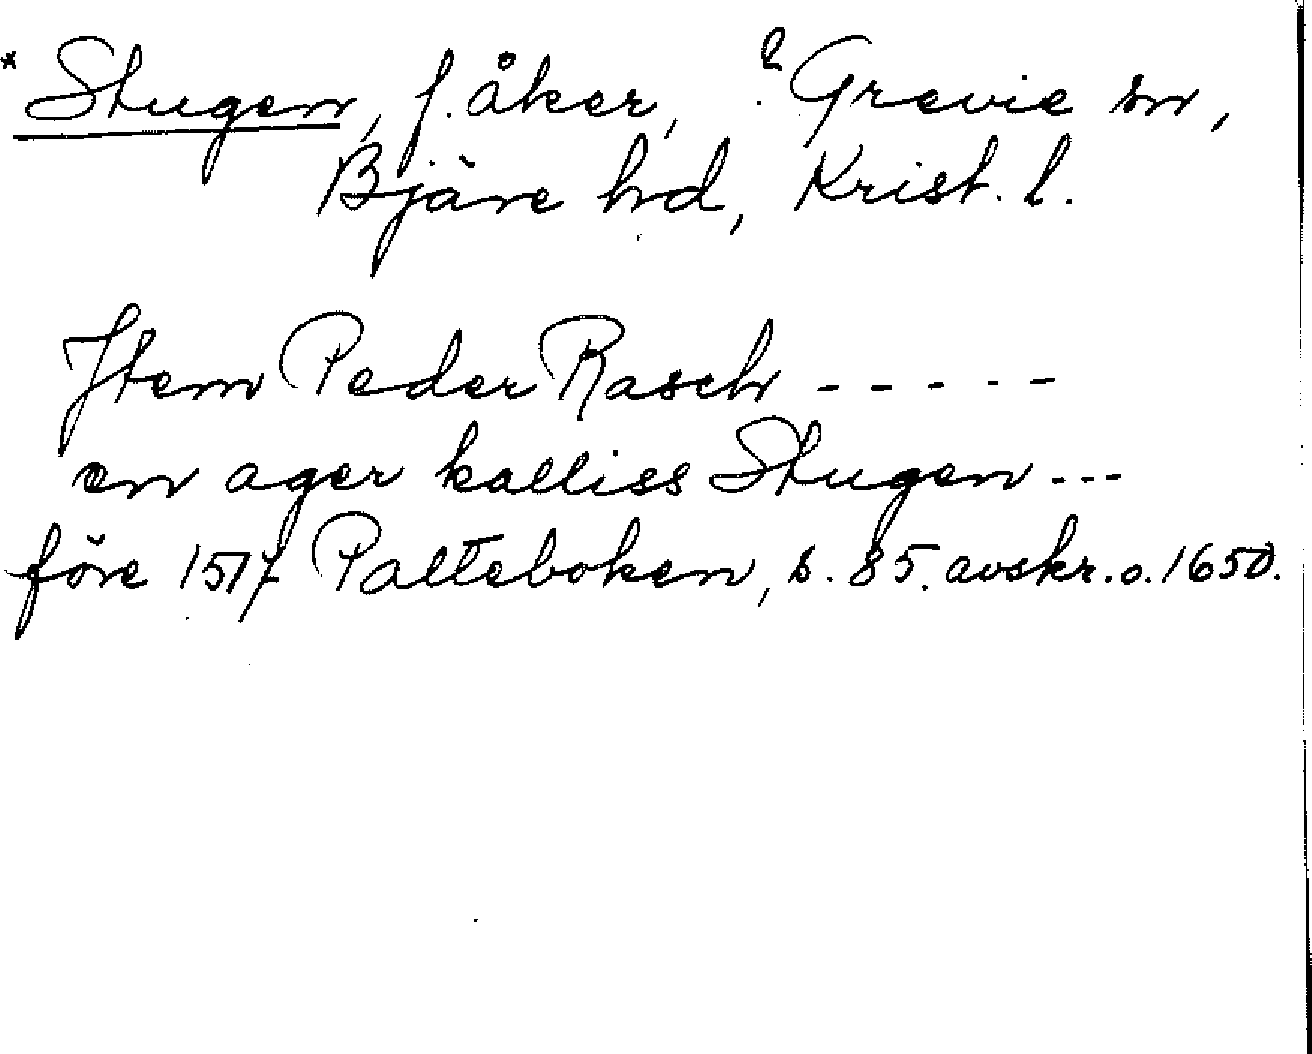 * Stugen, f. åker, ? Grevie sn,
Bjäre hd, Krist. l.
Jtem Peder Rasch - - - - -
en ager kalliss Stugen ---
före 1517 Palteboken, s. 85. avskr. o. 1650.